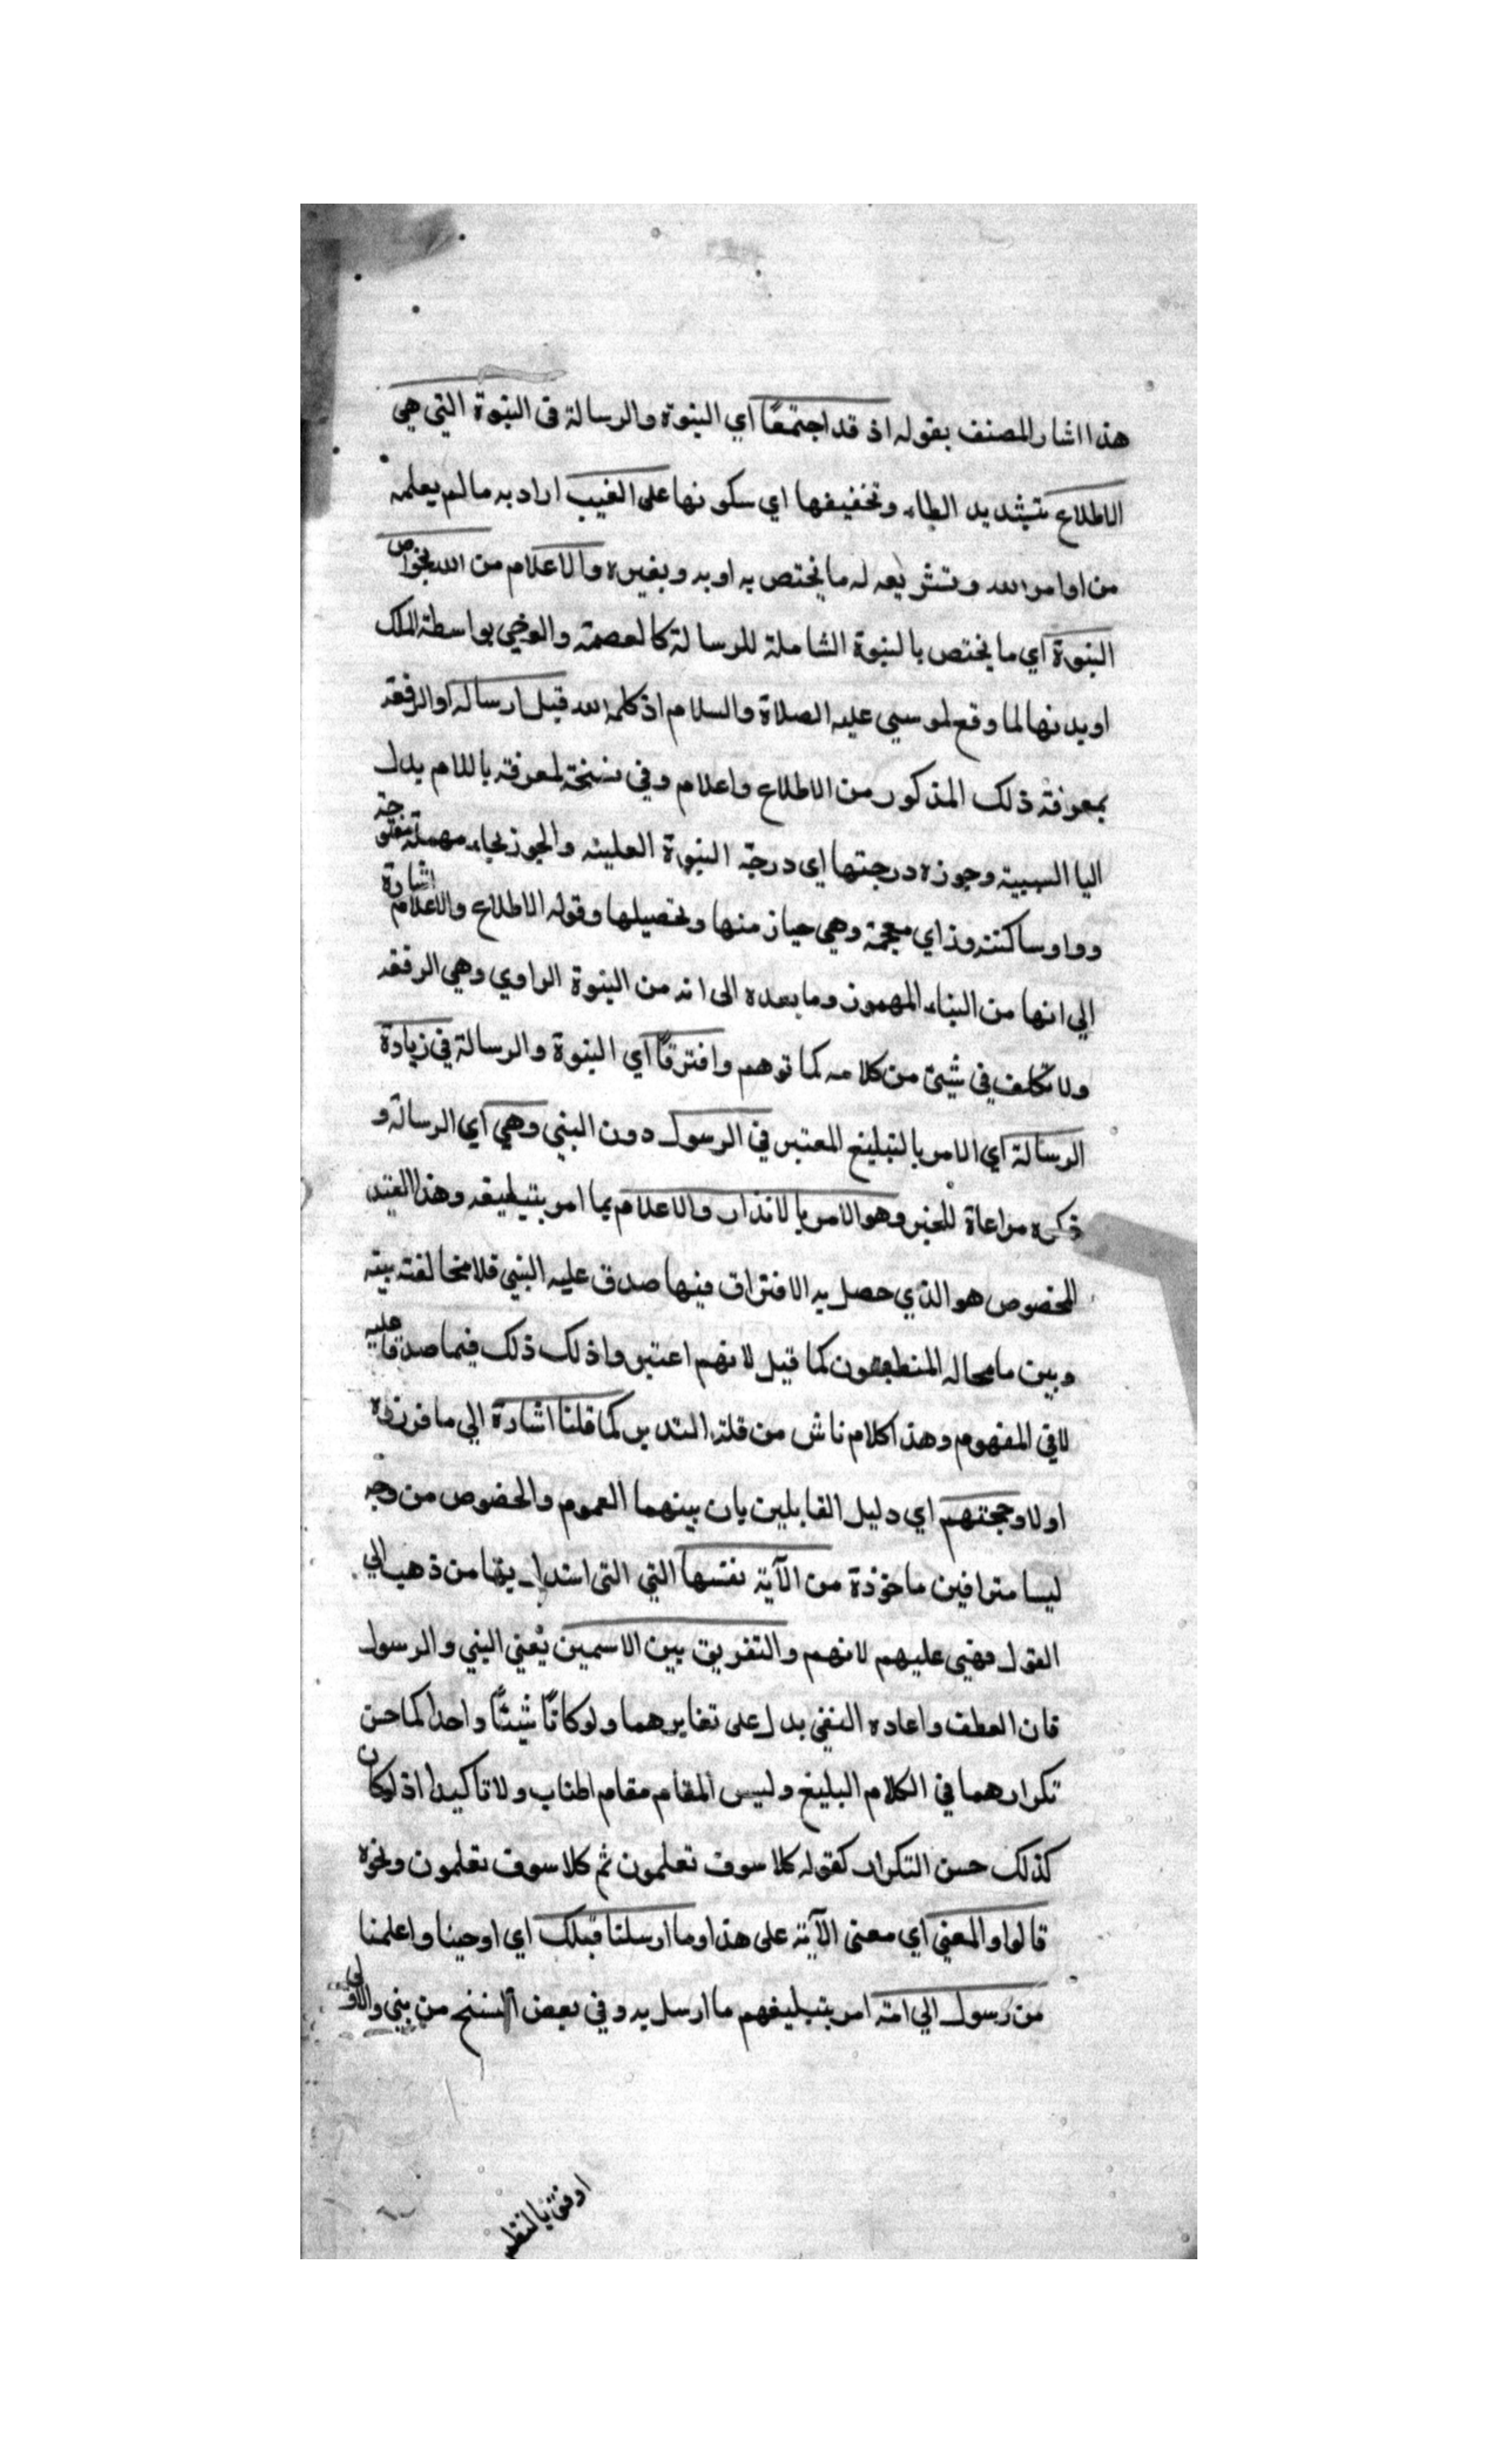 هذا اشار المصنف بقوله اذ قد اجتمعًا اي النبوة والرسالة في النبوة التي هي
الاطلاع بتشديد الطاء وتخفيفها اي سكونها على الغيب اراد به مالم يعلمه
من اوامر الله وتشريعه له ما يختص به او به وبغيره والاعلام من الله بخواص
النبوة اي ما يختص بالنبوة الشاملة للرسالة كالعصمة والوحي بواسطة الملك
اوبدنها لما وقع لموسي عليه الصلاة والسلام اذ كلمه الله قبل ارساله او الرفعة
بمعرفة ذلك المذكور من الاطلاع واعلام وفي نسخة لمعرفة باللام بدل
اليا السببية وحوزه درجتها اي درجة النبوة العلية والحوز بحاء مهملة مفتوحة
وواو ساكنة وزاي معجمة وهي حياز منها وتحصيلها وقوله الاطلاع والاعلام اشارة
الي انها من النباء المهموز وما بعده الى انه من النبوة الراوي وهي الرفعة
ولا تكلف في شيئ من كلامه كما توهم وافترقًا اي النبوة والرسالة في زيادة
الرسالة اي الامر بالتبليغ المعتبر في الرسول دون النبي وهي اي الرسالة و
ذكره مراعاة للخبر وهو الامر بالانذار والاعلام بما امر بتبليغه وهذا القيد
المخصوص هو الذي حصل به الافتراق فيها صدق عليه النبي فلا مخالفة بينه
وبين ما محاله المنطيقون كما قيل لانهم اعتبروا ذلك ذلك فيما صدقا عليه
لافي المفهوم وهذا كلام ناش من قلة التدبر كما قلنا اشارة الي ما قررناه
اولا وحجتهم اي دليل القايلين بان بينهما العموم والخصوص من وجه
ليسا مترافين ماخوذة من الآية نفسها التي التى استدل بها من ذهب الي
القول فهي عليهم لانهم والتفريق بين الاسمين يعني النبي والرسول
فان العطف واعاده النفي بدل على تغايرهما ولو كانًا شيئًا واحدا لما حسن
تكرارهما في الكلام البليغ وليس المقام مقام اطناب ولا تاكيدا اذ لوكان
كذلك حسن التكرار كقوله كلا سوف تعلمون ثم كلا سوف تعلمون ونحوه
قالوا والمعني اي معنى الآية على هذا وما ارسلنا قبلك اي اوحينا واعلمنا
من رسول الي امته امر بتبليغهم ما ارسل به وفي بعض النسخ من نبي والاولى
اوفق بالنظم